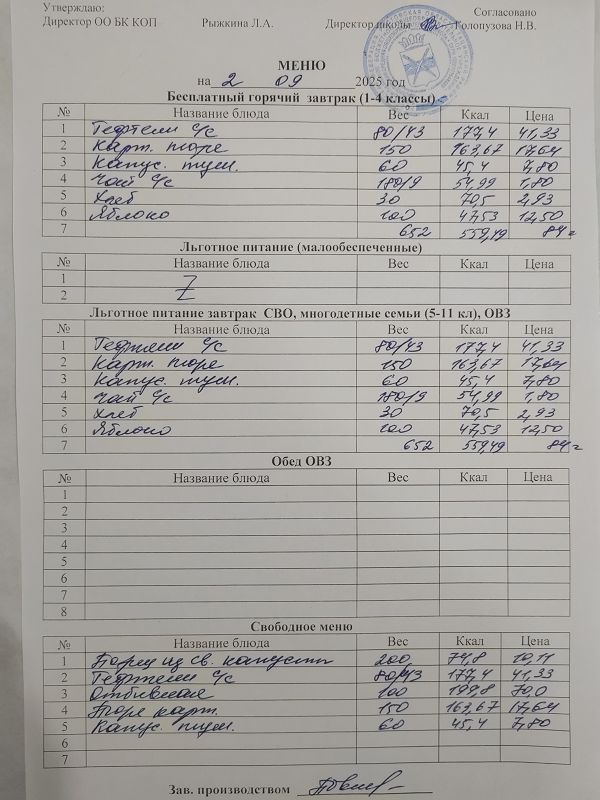 Утверждаю:
Согласовано
Директор ОО БК КОП Рыжкина Л.А. Директор школы Голопузова Н.В.
МЕНЮ
на 2 09 2025 год
Бесплатный горячий завтрак (1-4 классы)
№ Название блюда Вес Ккал Цена
1 Тефтели с/с 80/43 177,4 41,33
2 Карт. пюре 150 163,67 17,64
3 Капус. туш. 60 45,4 7,80
4 Чай с/с 180/9 54,99 1,80
5 Хлеб 30 70,5 2,93
6 Яблоко 100 47,53 12,50
7 652 559,49 84
Льготное питание (малообеспеченные)
№ Название блюда Вес Ккал Цена
1
2
Льготное питание завтрак СВО, многодетные семьи (5-11 кл), ОВЗ
№ Название блюда Вес Ккал Цена
1 Тефтели с/с 80/43 177,4 41,33
2 Карт. пюре 150 163,67 17,64
3 Капус. туш. 60 45,4 7,80
4 Чай с/с 180/9 54,99 1,80
5 Хлеб 30 70,5 2,93
6 Яблоко 100 47,53 12,50
7 652 559,49 84
Обед ОВЗ
№ Название блюда Вес Ккал Цена
1
2
3
4
5
6
7
8
Свободное меню
№ Название блюда Вес Ккал Цена
1 Борщ из св. капусты 200 74,8 19,11
2 Тефтели с/с 80/43 177,4 41,33
3 Отбивная 100 199,8 70,0
4 Пюре карт. 150 163,67 17,64
5 Капус. туш. 60 45,4 7,80
6
7
Зав. производством